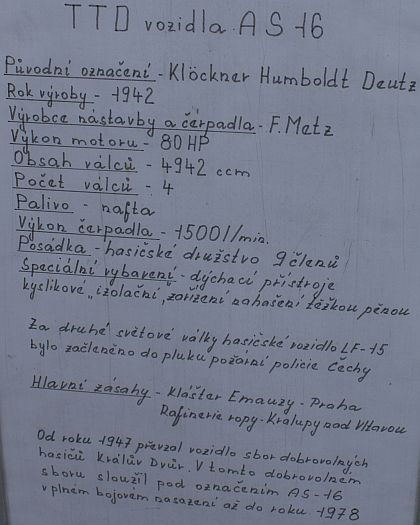 TTD vozidla AS-16
Původní označení - Klöckner Humboldt Deutz
Rok výroby - 1942
Výrobce nástavby a čerpadla - F. Metz
Výkon motoru - 80 HP
Obsah válců - 4942 ccm
Počet válců - 4
Palivo - nafta
Výkon čerpadla - 1500 l/min.
Posádka - hasičské družstvo 9 členů
Speciální vybavení - dýchací přístroje
kyslíkové „izolační", zařízení na hašení těžkou pěnou
Za druhé světové války hasičské vozidlo LF-15
bylo začleněno do pluku požární policie Čechy
Hlavní zásahy - Klášter Emauzy - Praha
Rafinerie ropy - Kralupy nad Vltavou
Od roku 1947 převzal vozidlo sbor dobrovolných
hasičů Králův Dvůr. V tomto dobrovolném
sboru sloužil pod označením AS-16
v plném bojovém nasazení až do roku 1978